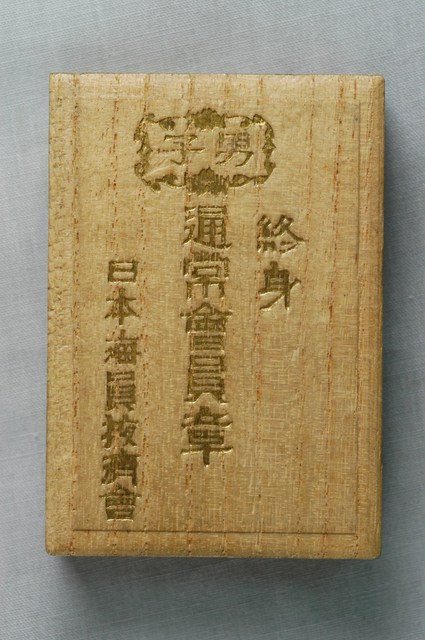 男子
終身
通常會員章
日本海員掖濟會